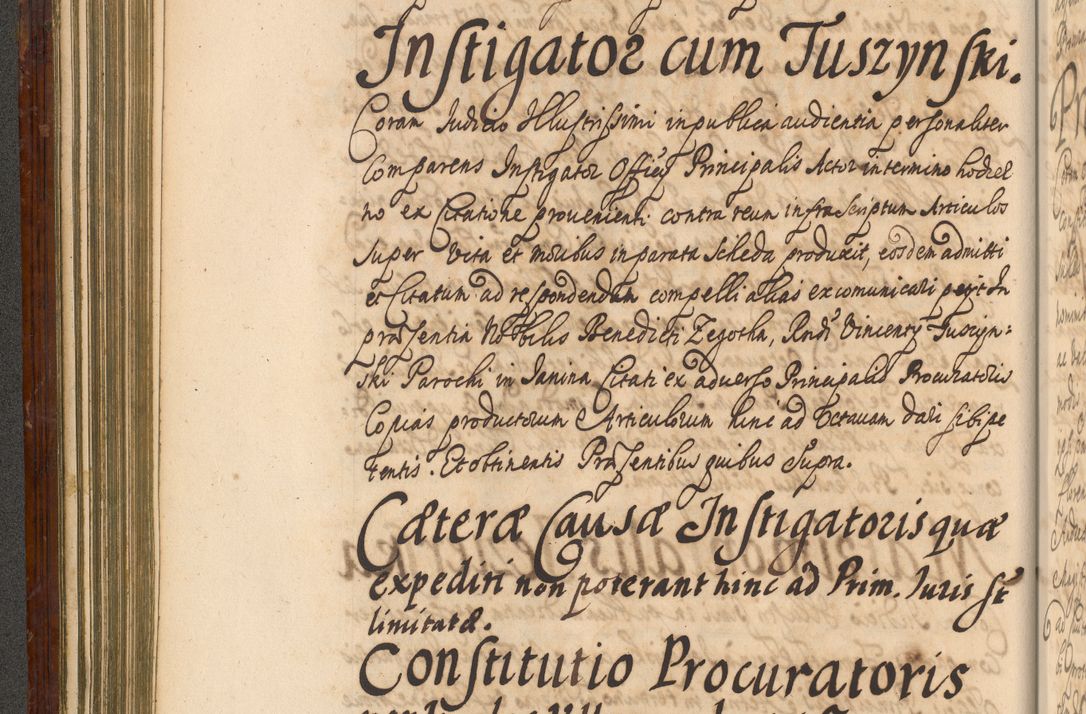 Instigator cum Tuszynski.
Coram Iudicio Illustrissimi in publica audientia personaliter
Comparens Instigator Officij Principalis Actor in termino hodier
no ex Citatione provenienti contra reum infrascriptum Articulos
super vita et moribus in parata scheda produxit, eosdem admitti
et Citatum ad respondendum compelli alias excomunicari petijt In
præsentia Nobilis Benedicti Zegotha, Rndi Vincenty Tuszyn=
ski Parochi in Janina Citati ex adverso Principalis Procuratoris
Copias productorum Articulorum hinc ad Octavam dari sibi pe
tentis. Et obtinentis Præsentibus quibus supra.
Cæteræ Causæ Instigatoris quæ
expediri non poterant hinc ad Prim. Iuris st
limitatæ.
Constitutio Procuratoris